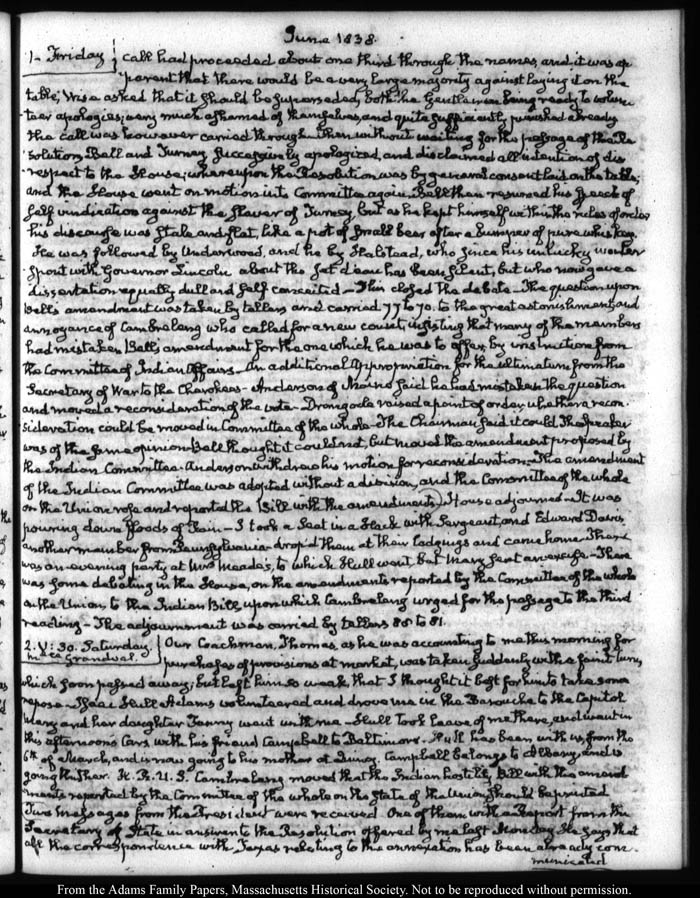 June 1838.
1. Friday. call had proceeded about one third through the names, and it was ap
parent that there would be a very large majority against laying it on the
table, Wise asked that it should be superseded, both the Gentlemen being ready to volun
teer apologies; very much ashamed of themselves, and quite sufficiently punished already
the call was however carried through. Then without waiting for the passage of the Re
solution, Bell and Turney successively apologized, and disclaimed all intention of dis
respect to the House; whereupon the Resolution was by general consent laid on the table;
and the House went on motion into Committee again. Bell then resumed his speech of
self vindication against the slaver of Turney, but as he kept himself within the rules of order
his discourse was stale and flat, like a pot of small beer after a bumper of pure whiskey.
He was followed by Underwood, and he by Halstead, who since his unlucky
Sport with Governor Lincoln about the jet d'eau has been silent, but who now gave a
dissertation equally dull and self conceited — This closed the debate — The question upon
Bell's amendment was taken by tellers and carried 77 to 70. to the great astonishment and
annoyance of Cambreleng who called for a new count, insisting that many of the members
had mistaken Bell's amendment for the one which he was to offer, by instruction from
the Committee of Indian Affairs. An additional Appropriation for the ultimatum from the
Secretary of War to the Cherokees — Anderson of Maine said he had mistaken the question
and moved a reconsideration of the vote — Dromgoole raised a point of order, whether a recon
sideration could be moved in Committee of the whole — The Chairman said it could. The Speaker
was of the same opinion. Bell thought it could not, but moved the amendment proposed by
the Indian Committee. Anderson withdrew his motion for reconsideration. The amendment
of the Indian Committee was adopted without a division, and the Committee of the whole
on the Union rose and reported the Bill with the amendments. House adjourned — It was
pouring down floods of rain — I took a seat in a Hack with Sergeant, and Edward Davis
another member from Pennsylvania — drop'd them at their lodgings and came home. There
was an evening party at Mrs Meade's, to which Hull went but Mary sent an excuse — There
was some debating in the House, on the amendments reported by the Committee of the whole
on the Union, to the Indian Bill, upon which Cambreleng urged for the passage to the third
reading — The adjournment was carried by tellers 85 to 81.
2. V: 30. Saturday. Our Coachman, Thomas, as he was accounting to me this morning for
Grandval. purchases of provisions at market, was taken suddenly with a faint turn,
which soon passed away; but left him so weak, that I thought it best for him to take some
repose — Isaac Hull Adams volunteered and drove me in the Barouche to the Capitol
Mary and her daughter Fanny went with me — Hull took leave of me there, and went in
this afternoon's Cars with his friend Campbell to Baltimore. Hull has been with us, from the
6th of March, and is now going to his mother at Quincy. Campbell belongs to Albany, and is
going thither. H. R. U. S. Cambreleng moved that the Indian hostility Bill with the amend
ments reported by the Committee of the whole on the State of the Union should be printed
Two messages from the President were received. One of them with a Report from the
Secretary of State in answer to the Resolution offered by me last Monday. He says that
all the correspondence with Texas relating to the annexation has been already com.
municated
From the Adams Family Papers, Massachusetts Historical Society. Not to be reproduced without permission.